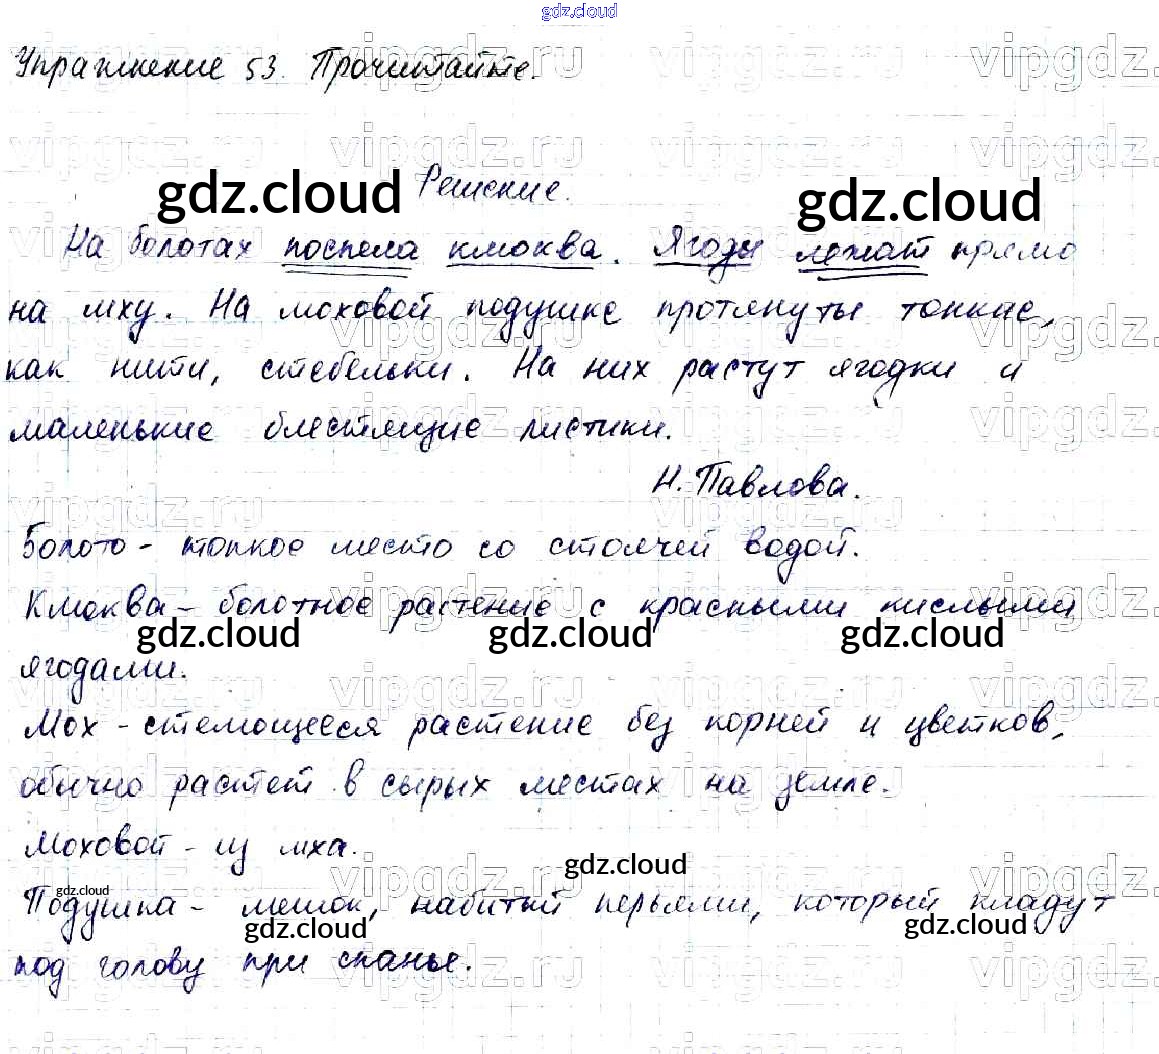 gdz.cloud
Упражнение 53. Прочитайте.
Решение.
На болотах поспела клюква. Ягоды лежат прямо
на мху. На моховой подушке протянуты тонкие,
как нити, стебельки. На них растут ягодки и
маленькие блестящие листики.
Н. Павлова.
Болото - топкое место со стоячей водой.
Клюква - болотное растение с красными кислыми
ягодами.
Мох - стелющееся растение без корней и цветков,
обычно растет в сырых местах на земле.
Моховой - из мха.
Подушка - мешок, набитый перьями, который кладут
под голову при спанье.